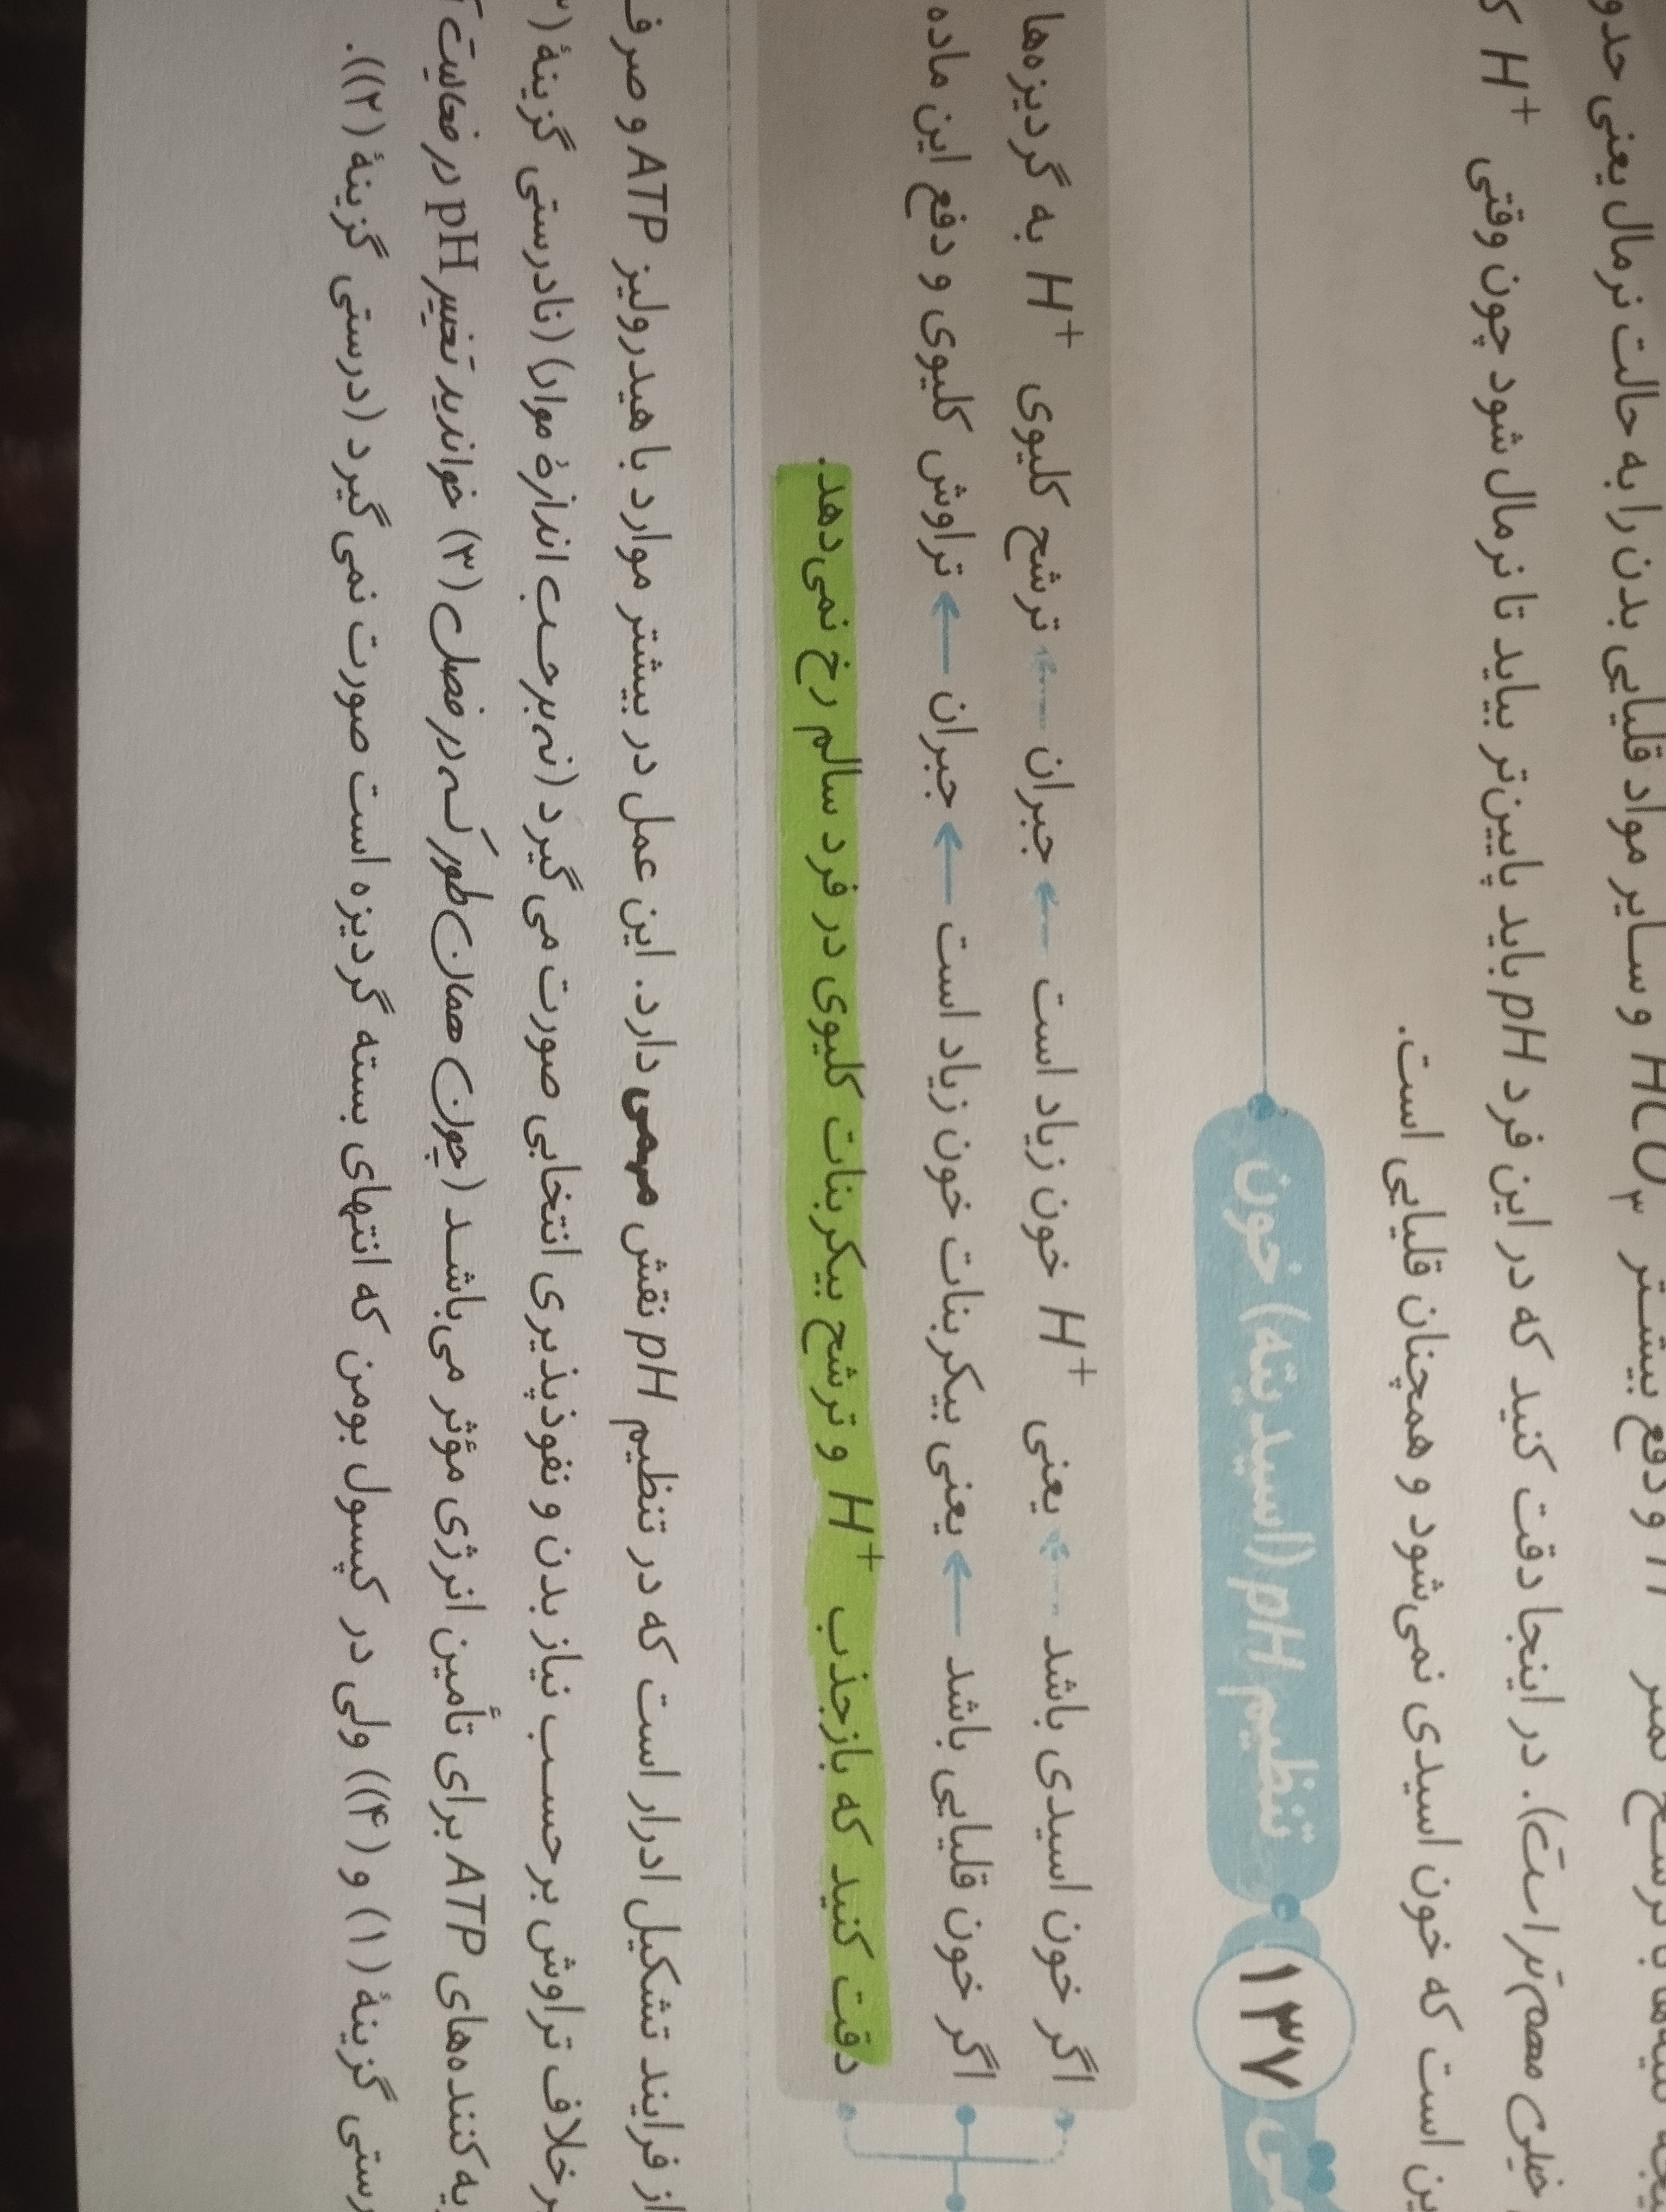 حالت نرمال یعنی حدو
HCO₃ و سایر مواد قلیایی بدن را به
و دفع بیشتر
خیلی مهم‌تر است). در اینجا دقت کنید که در این فرد pH باید پایین‌تر بیاید تا نرمال شود چون وقتی H⁺
است که خون اسیدی نمی‌شود و همچنان قلیایی است.
۱۳۷ تنظیم pH (اسیدیته) خون
اگر خون اسیدی باشد ← یعنی H⁺ خون زیاد است ← جبران ← ترشح کلیوی H⁺ به گردیزه‌ها
اگر خون قلیایی باشد ← یعنی بیکربنات خون زیاد است ← جبران ← تراوش کلیوی و دفع این ماده
دقت کنید که بازجذب H⁺ و ترشح بیکربنات کلیوی در فرد سالم رخ نمی‌دهد.
از فرایند تشکیل ادرار است که در تنظیم pH نقش مهمی دارد. این عمل در بیشتر موارد با هیدرولیز ATP و صرف
برخلاف تراوش برحسب نیاز بدن و نفوذپذیری انتخابی صورت می‌گیرد (نه برحسب اندازهٔ مواد) (نادرستی گزینهٔ
کننده‌های ATP برای تأمین انرژی مؤثر می‌باشد (چون همان‌طور که در فصل (۳) خواندید تغییر pH در فعالیت
گزینهٔ (۱) و (۴)) ولی در کپسول بومن که انتهای بسته گردیزه است صورت نمی‌گیرد (درستی گزینهٔ (۲)).